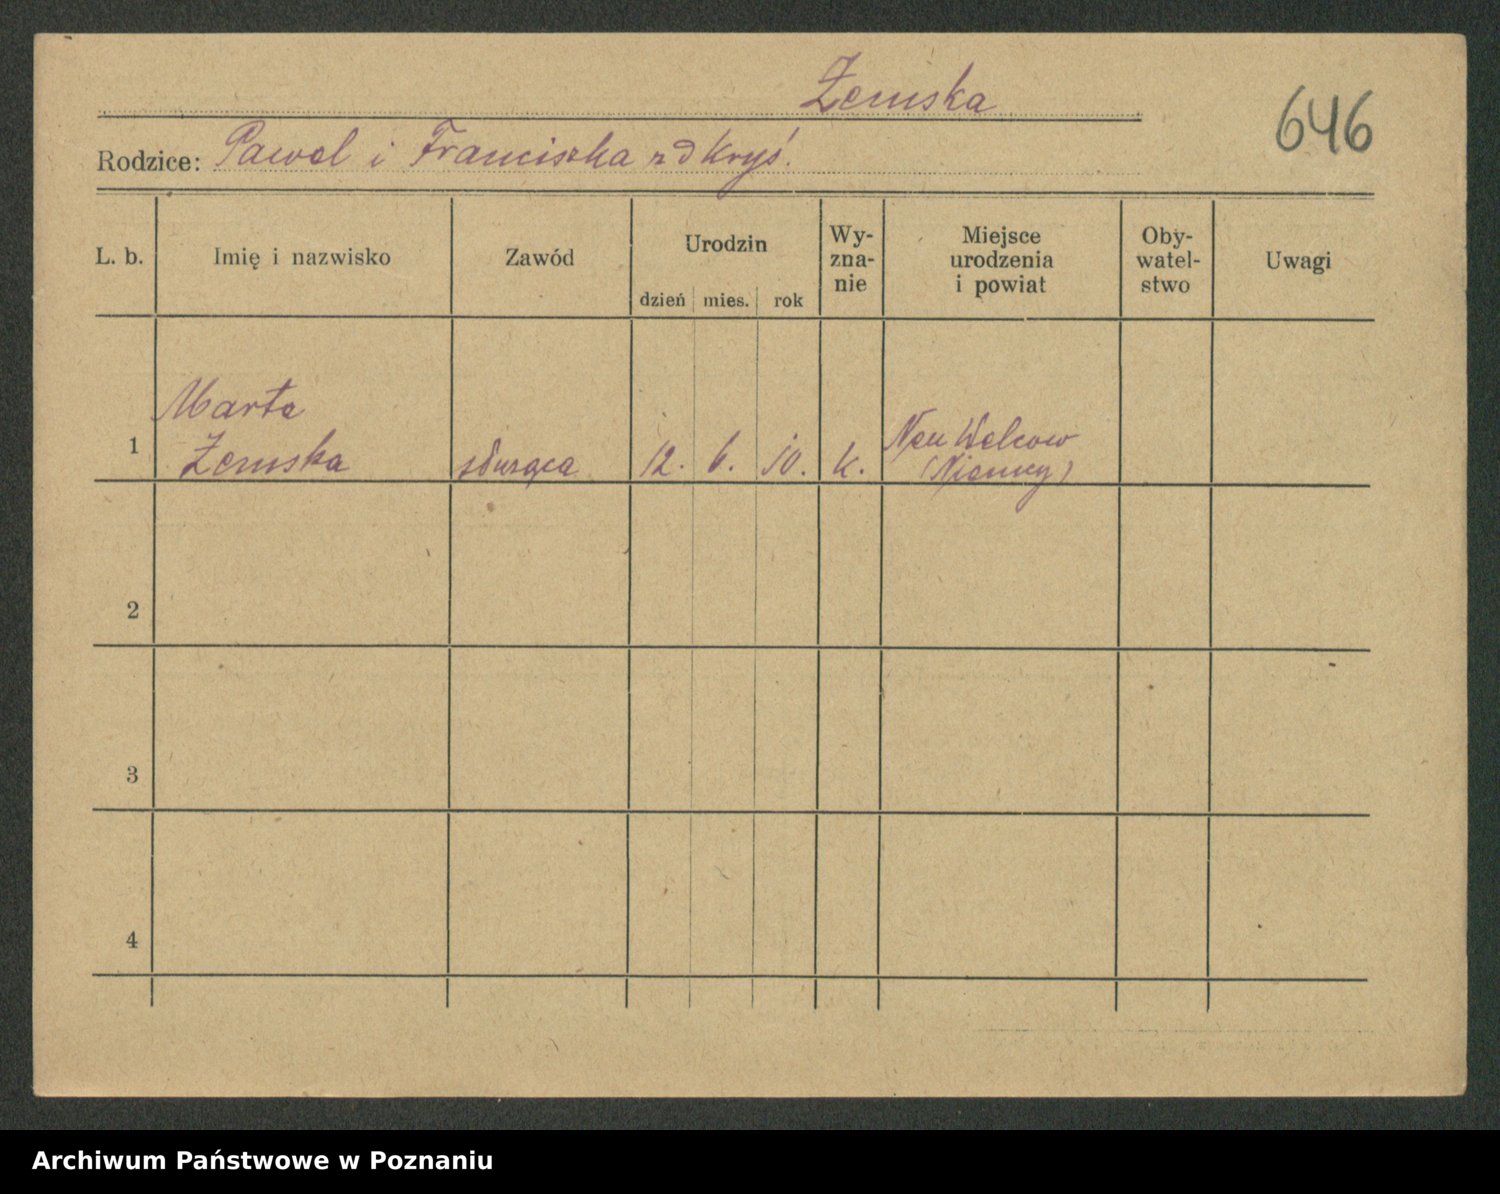 Żemska
646
Rodzice: Pawel i Franciszka zd Kryś.
L. b.
Imię i nazwisko
Zawód
Urodzin
dzień mies. rok
Wy-
zna-
nie
Miejsce
urodzenia
i powiat
Oby-
watel-
stwo
Uwagi
1
Marta
Żemska
służąca
12. 6. 10.
k.
Neu
(Niemcy)
2
3
4
Archiwum Państwowe w Poznaniu